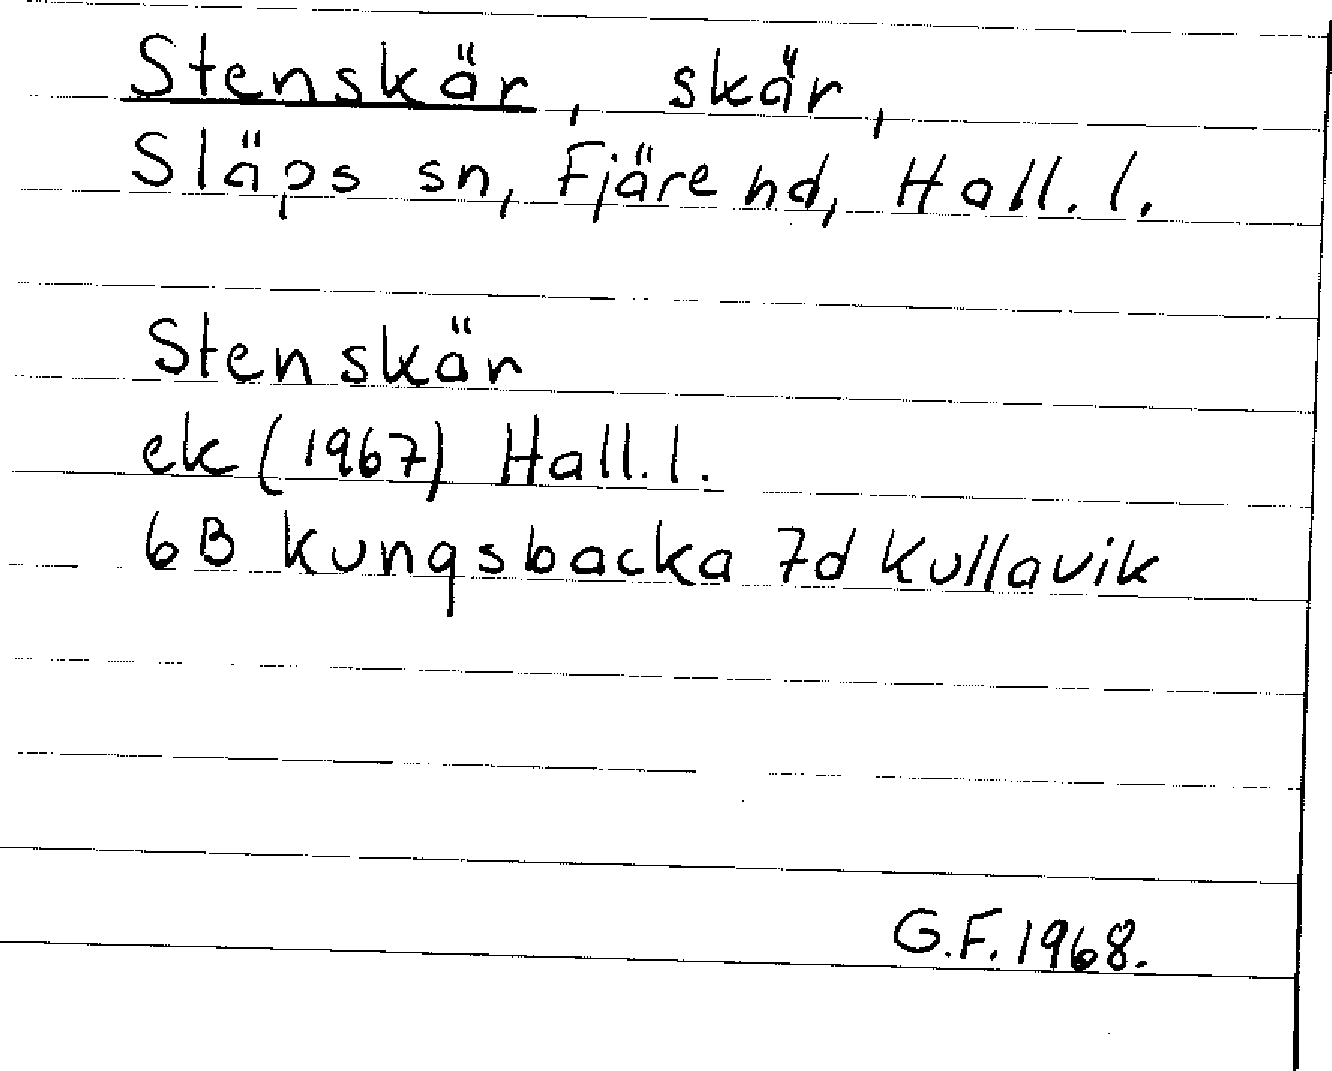 Stenskär, skär,
Släps sn, Fjäre hd, Hall. l.
Stenskär
ek (1967) Hall. l.
6B Kungsbacka 7d Kullavik
G.F. 1968.